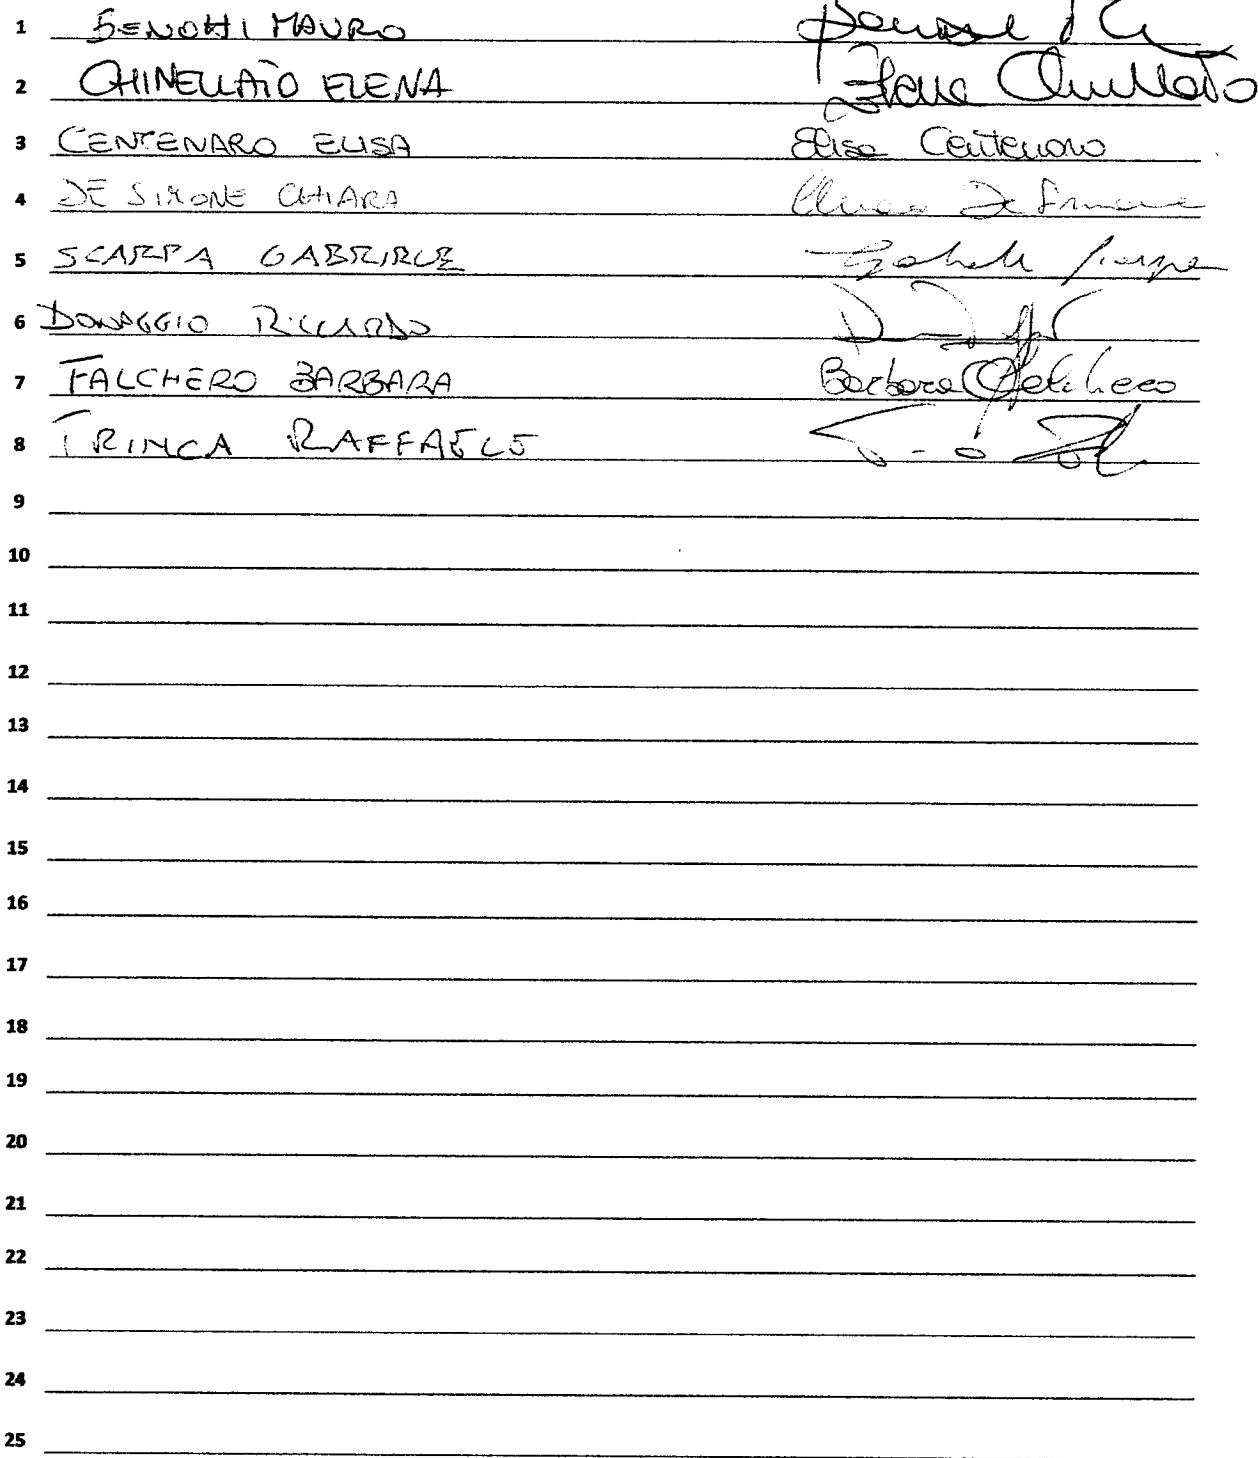 1 MAURO
2 CHINELLATO ELENA Elena Chinellato
3 CENTENARO ELISA Elisa Centenaro
4 DE SIMONE CHIARA Chiara De Simone
5 SCARPA GABRIELE Gabriele Scarpa
6 DONAGGIO RICCARDO
7 FALCHERO BARBARA Barbara Falchero
8 TRINCA RAFFAELE
9
10
11
12
13
14
15
16
17
18
19
20
21
22
23
24
25